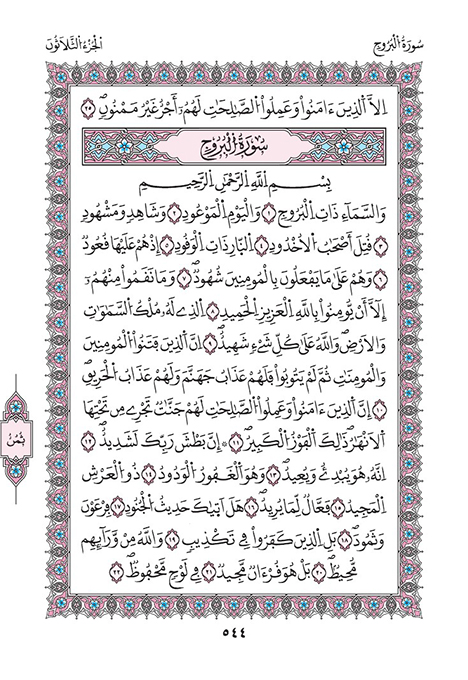 سُورَةُ الْبُرُوجِ
الْجُزْءُ الثَّلَاثُونَ
إِلَّا الَّذِينَ ءَامَنُواْ وَعَمِلُواْ الصَّٰلِحَٰتِ لَهُمُۥٓ أَجْرٌ غَيْرُ مَمْنُونٍ ٢٥
سُورَةُ الْبُرُوجِ
بِسْمِ اللَّهِ الرَّحْمَٰنِ الرَّحِيمِ
وَالسَّمَآءِ ذَاتِ الْبُرُوجِ ١ وَالْيَوْمِ الْمَوْعُودِ ٢ وَشَاهِدٍ وَمَشْهُودٍ
٣ قُتِلَ أَصْحَٰبُ الْأُخْدُودِ ٤ النَّارِ ذَاتِ الْوَقُودِ ٥ إِذْ هُمْ عَلَيْهَا قُعُودٌ
٦ وَهُمْ عَلَىٰ مَا يَفْعَلُونَ بِالْمُومِنِينَ شُهُودٌ ٧ وَمَا نَقَمُواْ مِنْهُمُۥٓ
إِلَّآ أَنْ يُّومِنُواْ بِاللَّهِ الْعَزِيزِ الْحَمِيدِ ٨ الَّذِے لَهُۥ مُلْكُ السَّمَٰوَٰتِ
وَالْأَرْضِ وَاللَّهُ عَلَىٰ كُلِّ شَےْءٍ شَهِيدٌ ٩ إِنَّ الَّذِينَ فَتَنُواْ الْمُومِنِينَ
وَالْمُومِنَٰتِ ثُمَّ لَمْ يَتُوبُواْ فَلَهُمْ عَذَابُ جَهَنَّمَ وَلَهُمْ عَذَابُ الْحَرِيقِ
١٠ إِنَّ الَّذِينَ ءَامَنُواْ وَعَمِلُواْ الصَّٰلِحَٰتِ لَهُمْ جَنَّٰتٌ تَجْرِے مِن تَحْتِهَا
الْأَنْهَٰرُ ذَٰلِكَ الْفَوْزُ الْكَبِيرُ ١١ إِنَّ بَطْشَ رَبِّكَ لَشَدِيدٌ ١٢
إِنَّهُۥ هُوَ يُبْدِئُ وَيُعِيدُ ١٣ وَهُوَ الْغَفُورُ الْوَدُودُ ١٤ ذُو الْعَرْشِ
الْمَجِيدُ ١٥ فَعَّالٌ لِّمَا يُرِيدُ ١٦ هَلْ أَتَيٰكَ حَدِيثُ الْجُنُودِ ١٧ فِرْعَوْنَ
وَثَمُودَ ١٨ بَلِ الَّذِينَ كَفَرُواْ فِے تَكْذِيبٍ ١٩ وَاللَّهُ مِنْ وَّرَآئِهِم
مُّحِيطٌ ٢٠ بَلْ هُوَ قُرْءَانٌ مَّجِيدٌ ٢١ فِے لَوْحٍ مَّحْفُوظٌ ٢٢
ثُمُنْ
٥٤٤